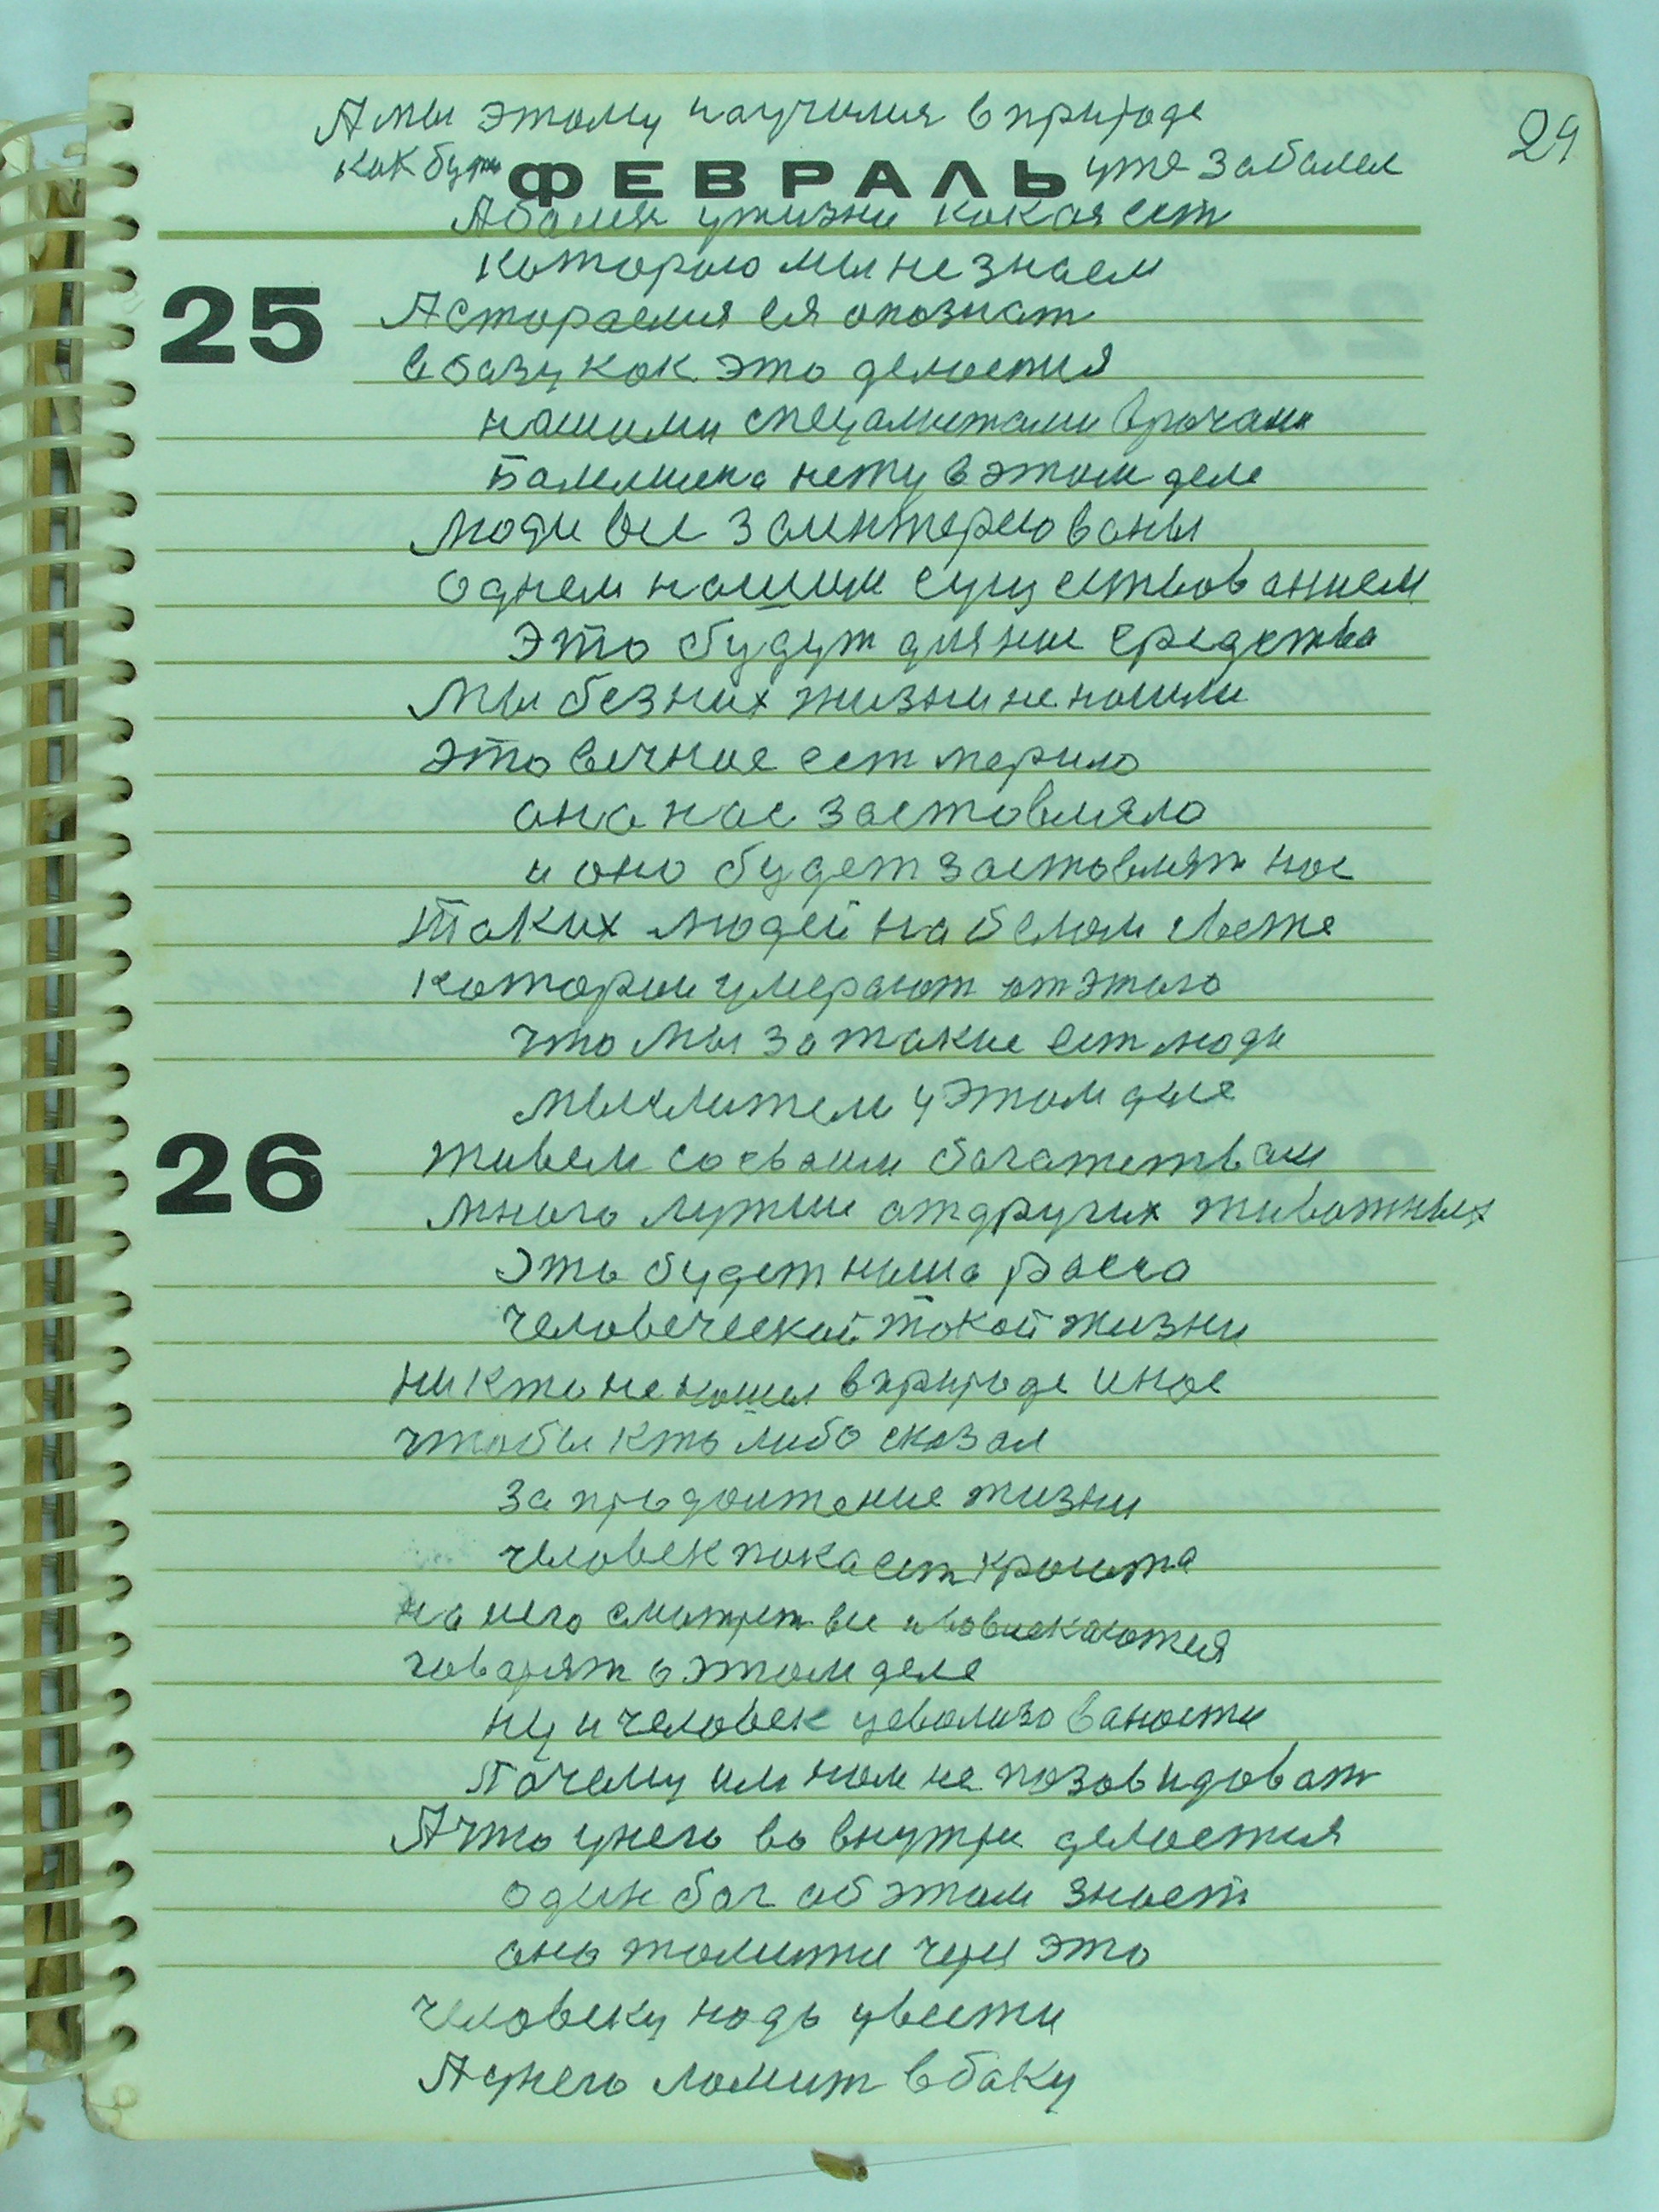 29
А мы этому научилися в природе
как будто уже заболел
ФЕВРАЛЬ
А болезн у жизни какая ест
которою мы не знаем
25
А стораемся ея опознат
в базу как это делается
нашими спецалистами врачами
Балелщика нету в этом деле
люди все заинтересованы
однем нашим существованием
Это будут для нас средства
мы без них жизни не нашли
это вечное ест мерило
она нас заставляло
и оно будет заставлят нас
таких людей на белом свете
которои умерают от этого
что мы за такие ест люди
мыслители у этом деле
26
живем со сваим багатством
много лутши от других живатных
Это будет наша расса
человеческой такой жизни
никто не нашел в природе иное
чтобы кто либо сказал
за продолжение жизни
человек пока ест
на него смотрят все и вовлекаются
говарят о этом деле
ну и человек цеволизованости
Почему им нам не позавидоват
А что у него во внутри делается
один бог об этом знает
оно
человеку надо увести
А у него ломит в баку